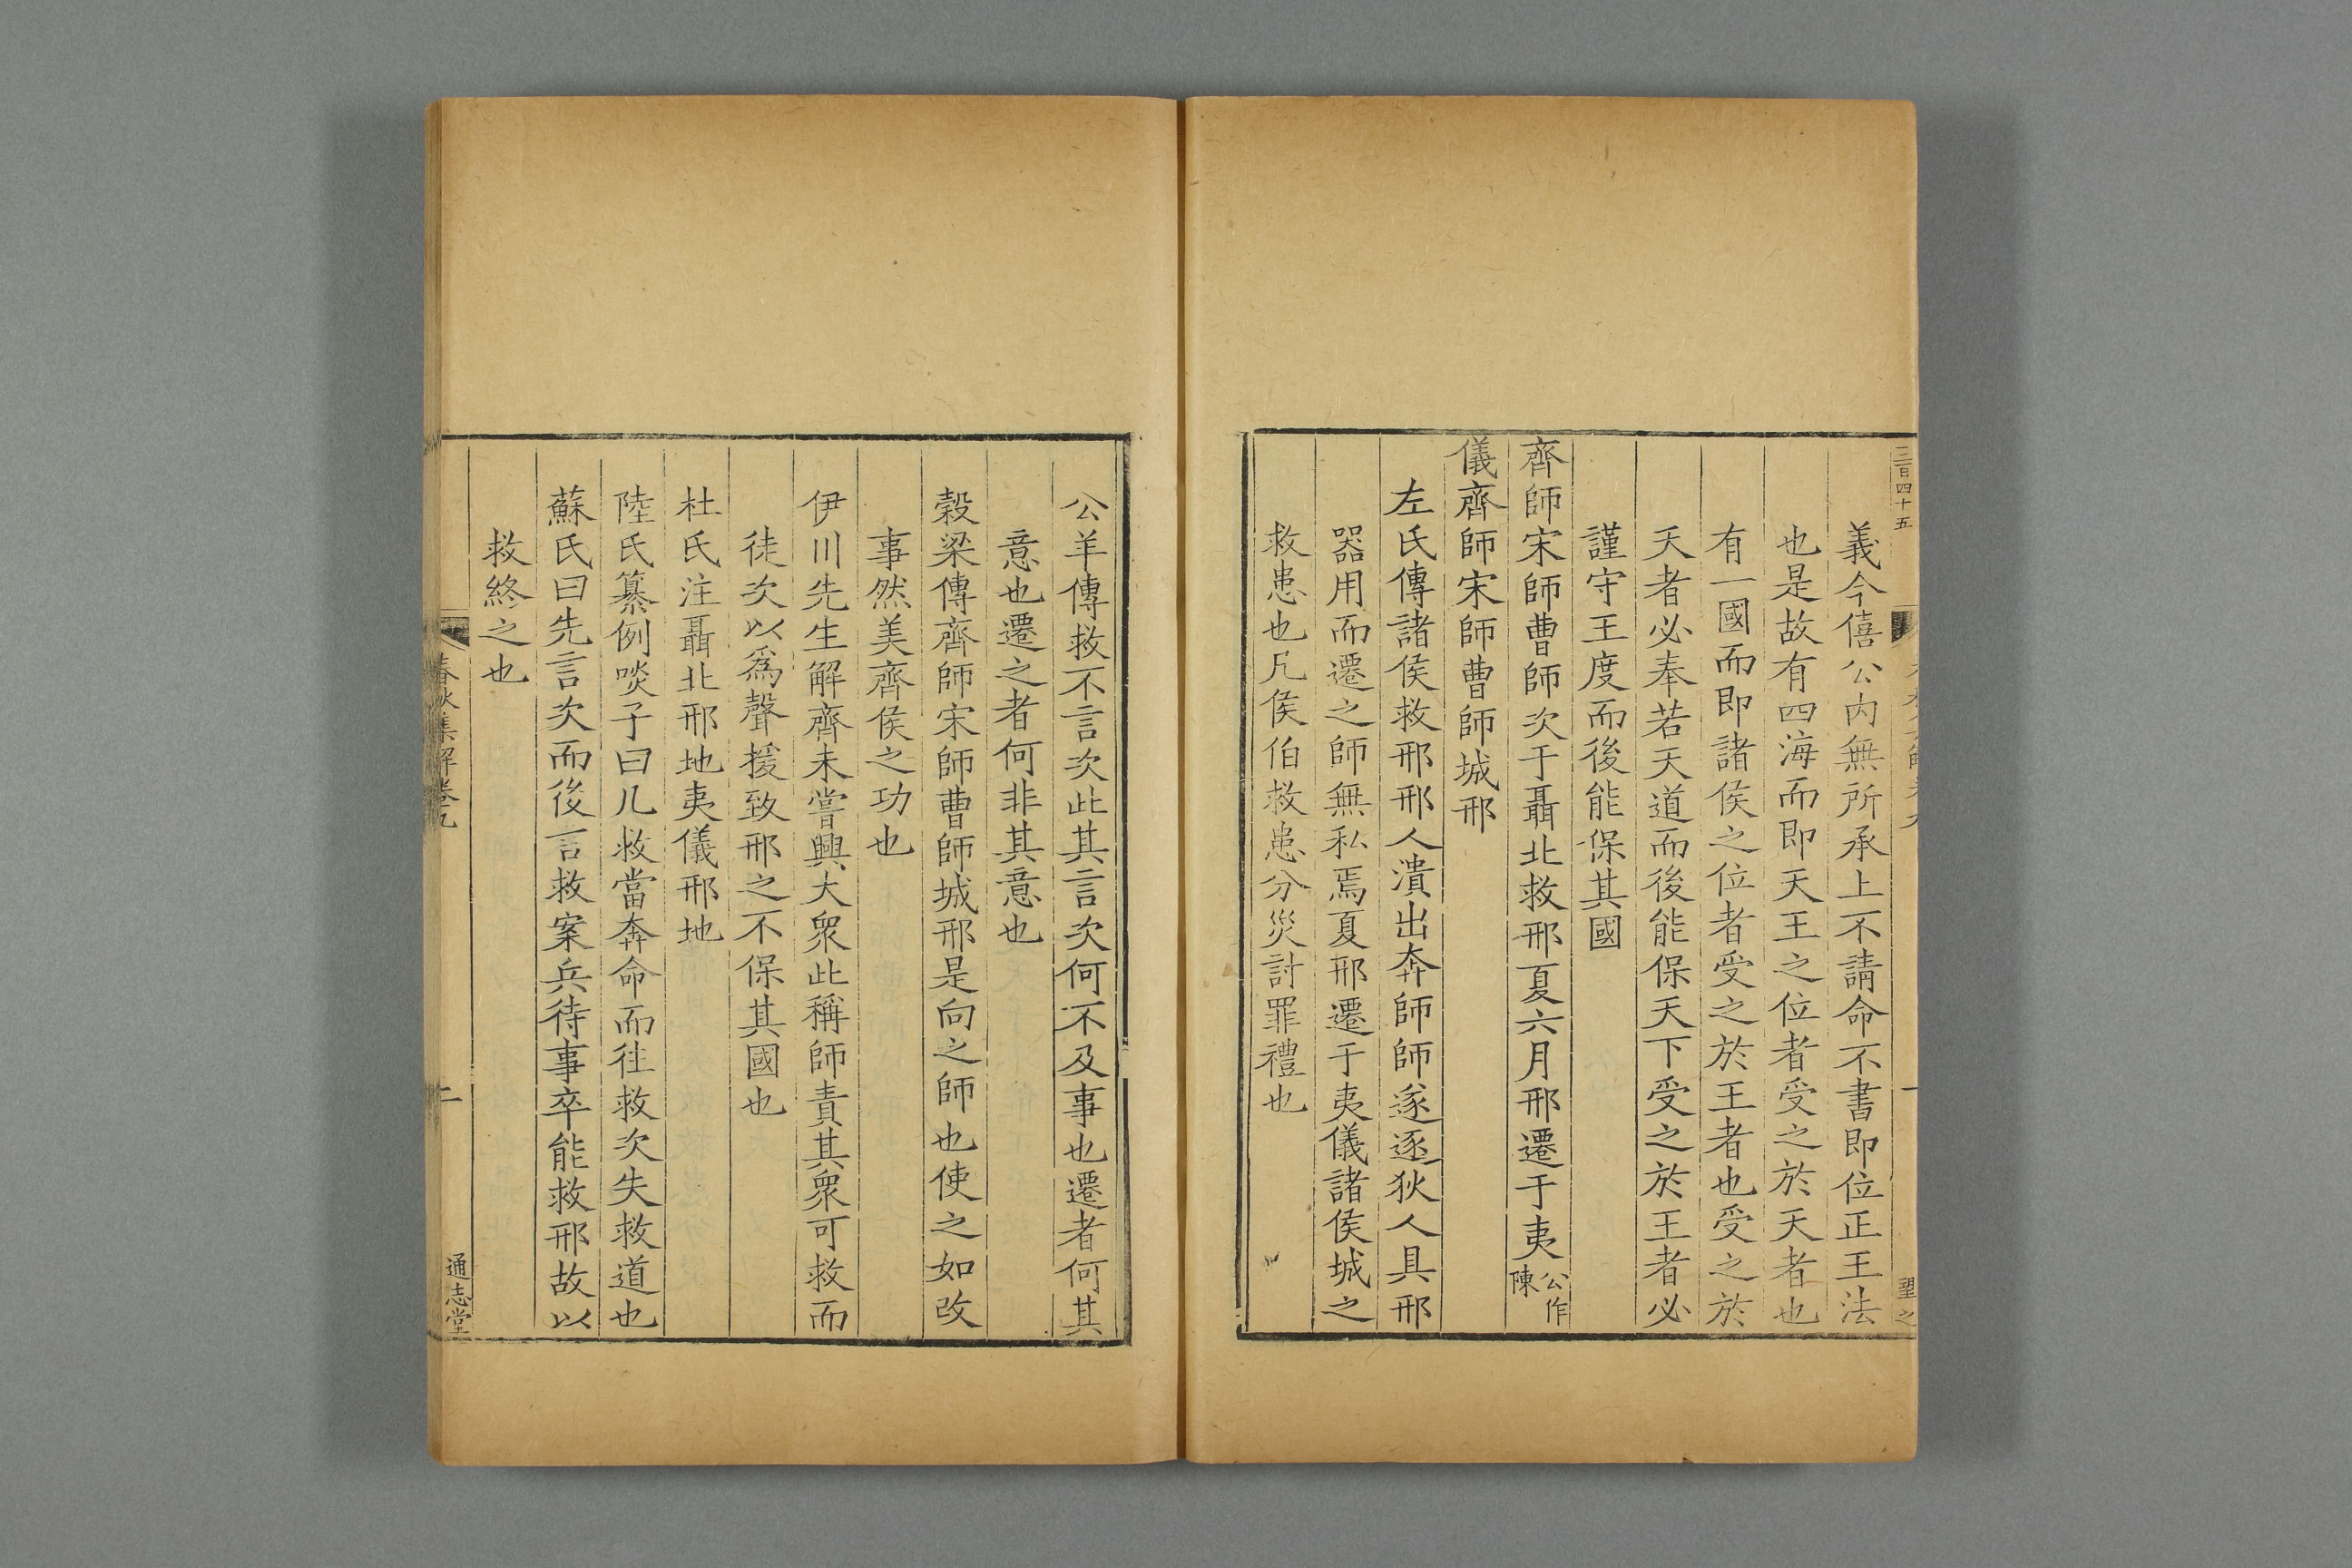 三百四十五
望之
義今僖公内無所承上不請命不書即位正王法
也是故有四海而即天王之位者受之於天者也
有一國而即諸侯之位者受之於王者也受之於
天者必奉若天道而後能保天下受之於王者必
謹守王度而後能保其國
齊師宋師曹師次于聶北救邢夏六月邢遷于夷公作陳
儀齊師宋師曹師城邢
左氏傳諸侯救邢邢人潰出奔師師遂逐狄人具邢
器用而遷之師無私焉夏邢遷于夷儀諸侯城之
救患也凡侯伯救患分災討罪禮也
公羊傳救不言次此其言次何不及事也遷者何其
意也遷之者何非其意也
穀梁傳齊師宋師曹師城邢是向之師也使之如改
事然美齊侯之功也
伊川先生解齊未嘗興大衆此稱師責其衆可救而
徒次以爲聲援致邢之不保其國也
杜氏注聶北邢地夷儀邢地
陸氏纂例啖子曰凡救當奔命而往救次失救道也
蘇氏曰先言次而後言救案兵待事卒能救邢故以
救終之也
春秋集解卷九
二
通志堂